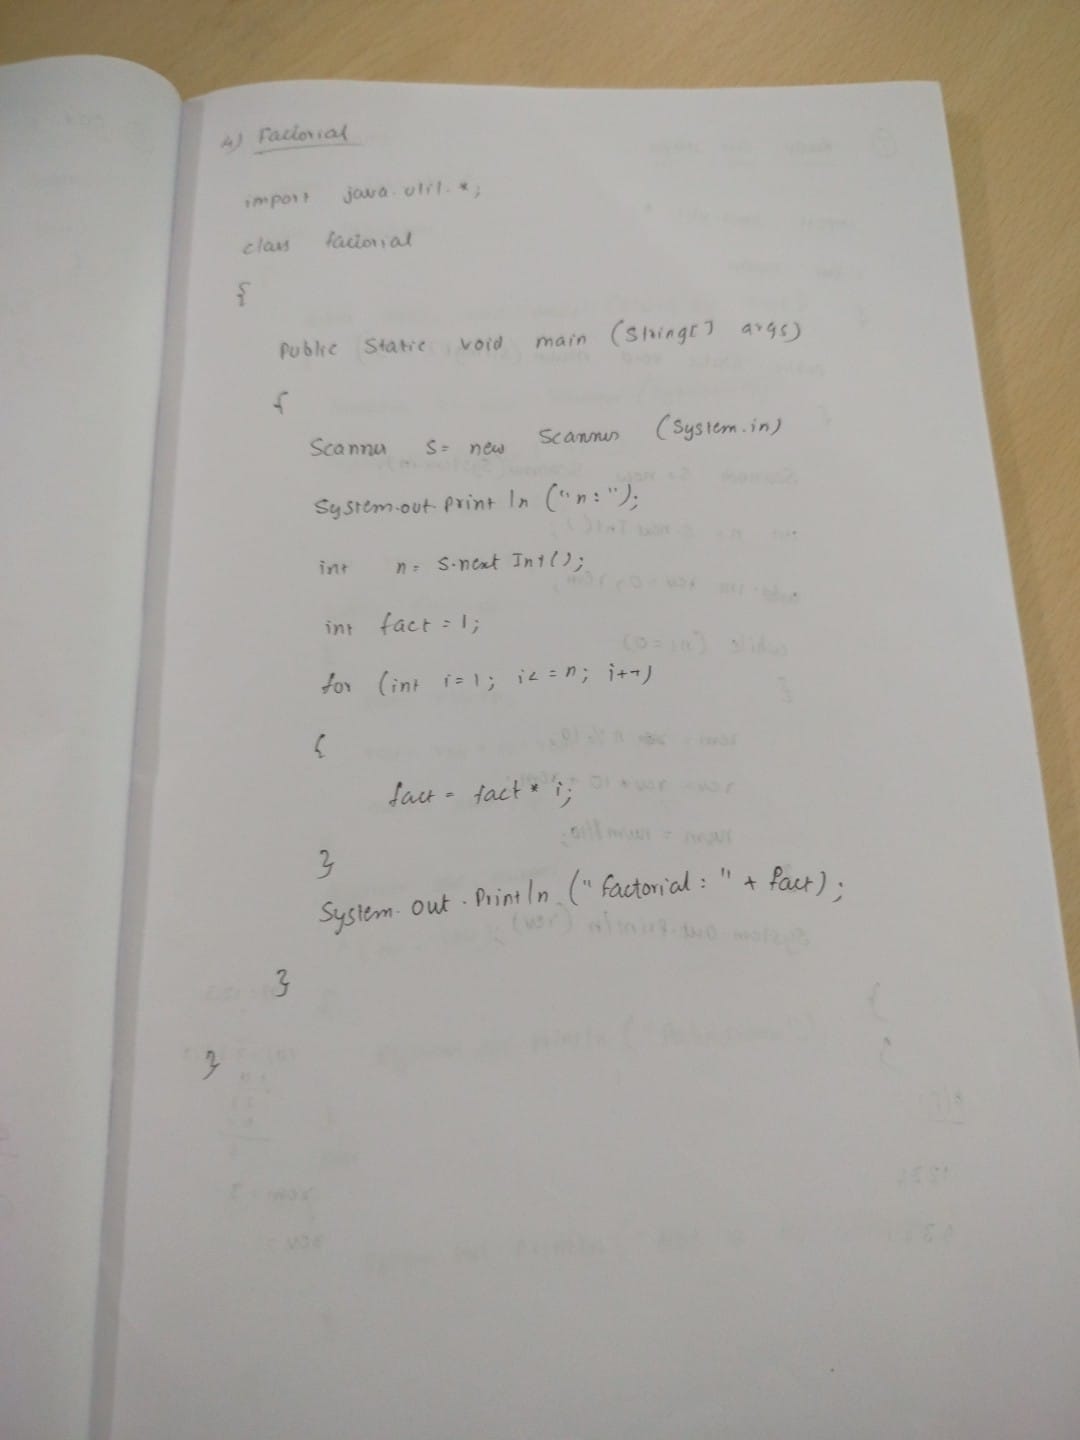 4) Factorial
import java.util.*;
class factorial
{
Public Static void main (String[] args)
{
Scanner S= new Scanner (System.in)
System.out.println ("n:");
int n= S.next Int();
int fact = 1;
for (int i=1; i<=n; i++)
{
fact = fact * i;
}
System.out.Println ("factorial:" + fact);
}
}